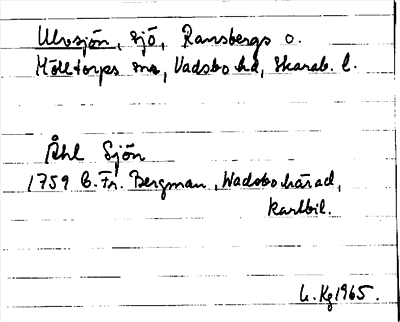 Ulvsjön, sjö, Ransbergs o.
Mölltorps snr, Vadsbo hd, Skarab. l.
Åhl Sjön
1759 C. Fr. Bergman, Wadsbo härad,
kartbil.
L. Kg 1965.